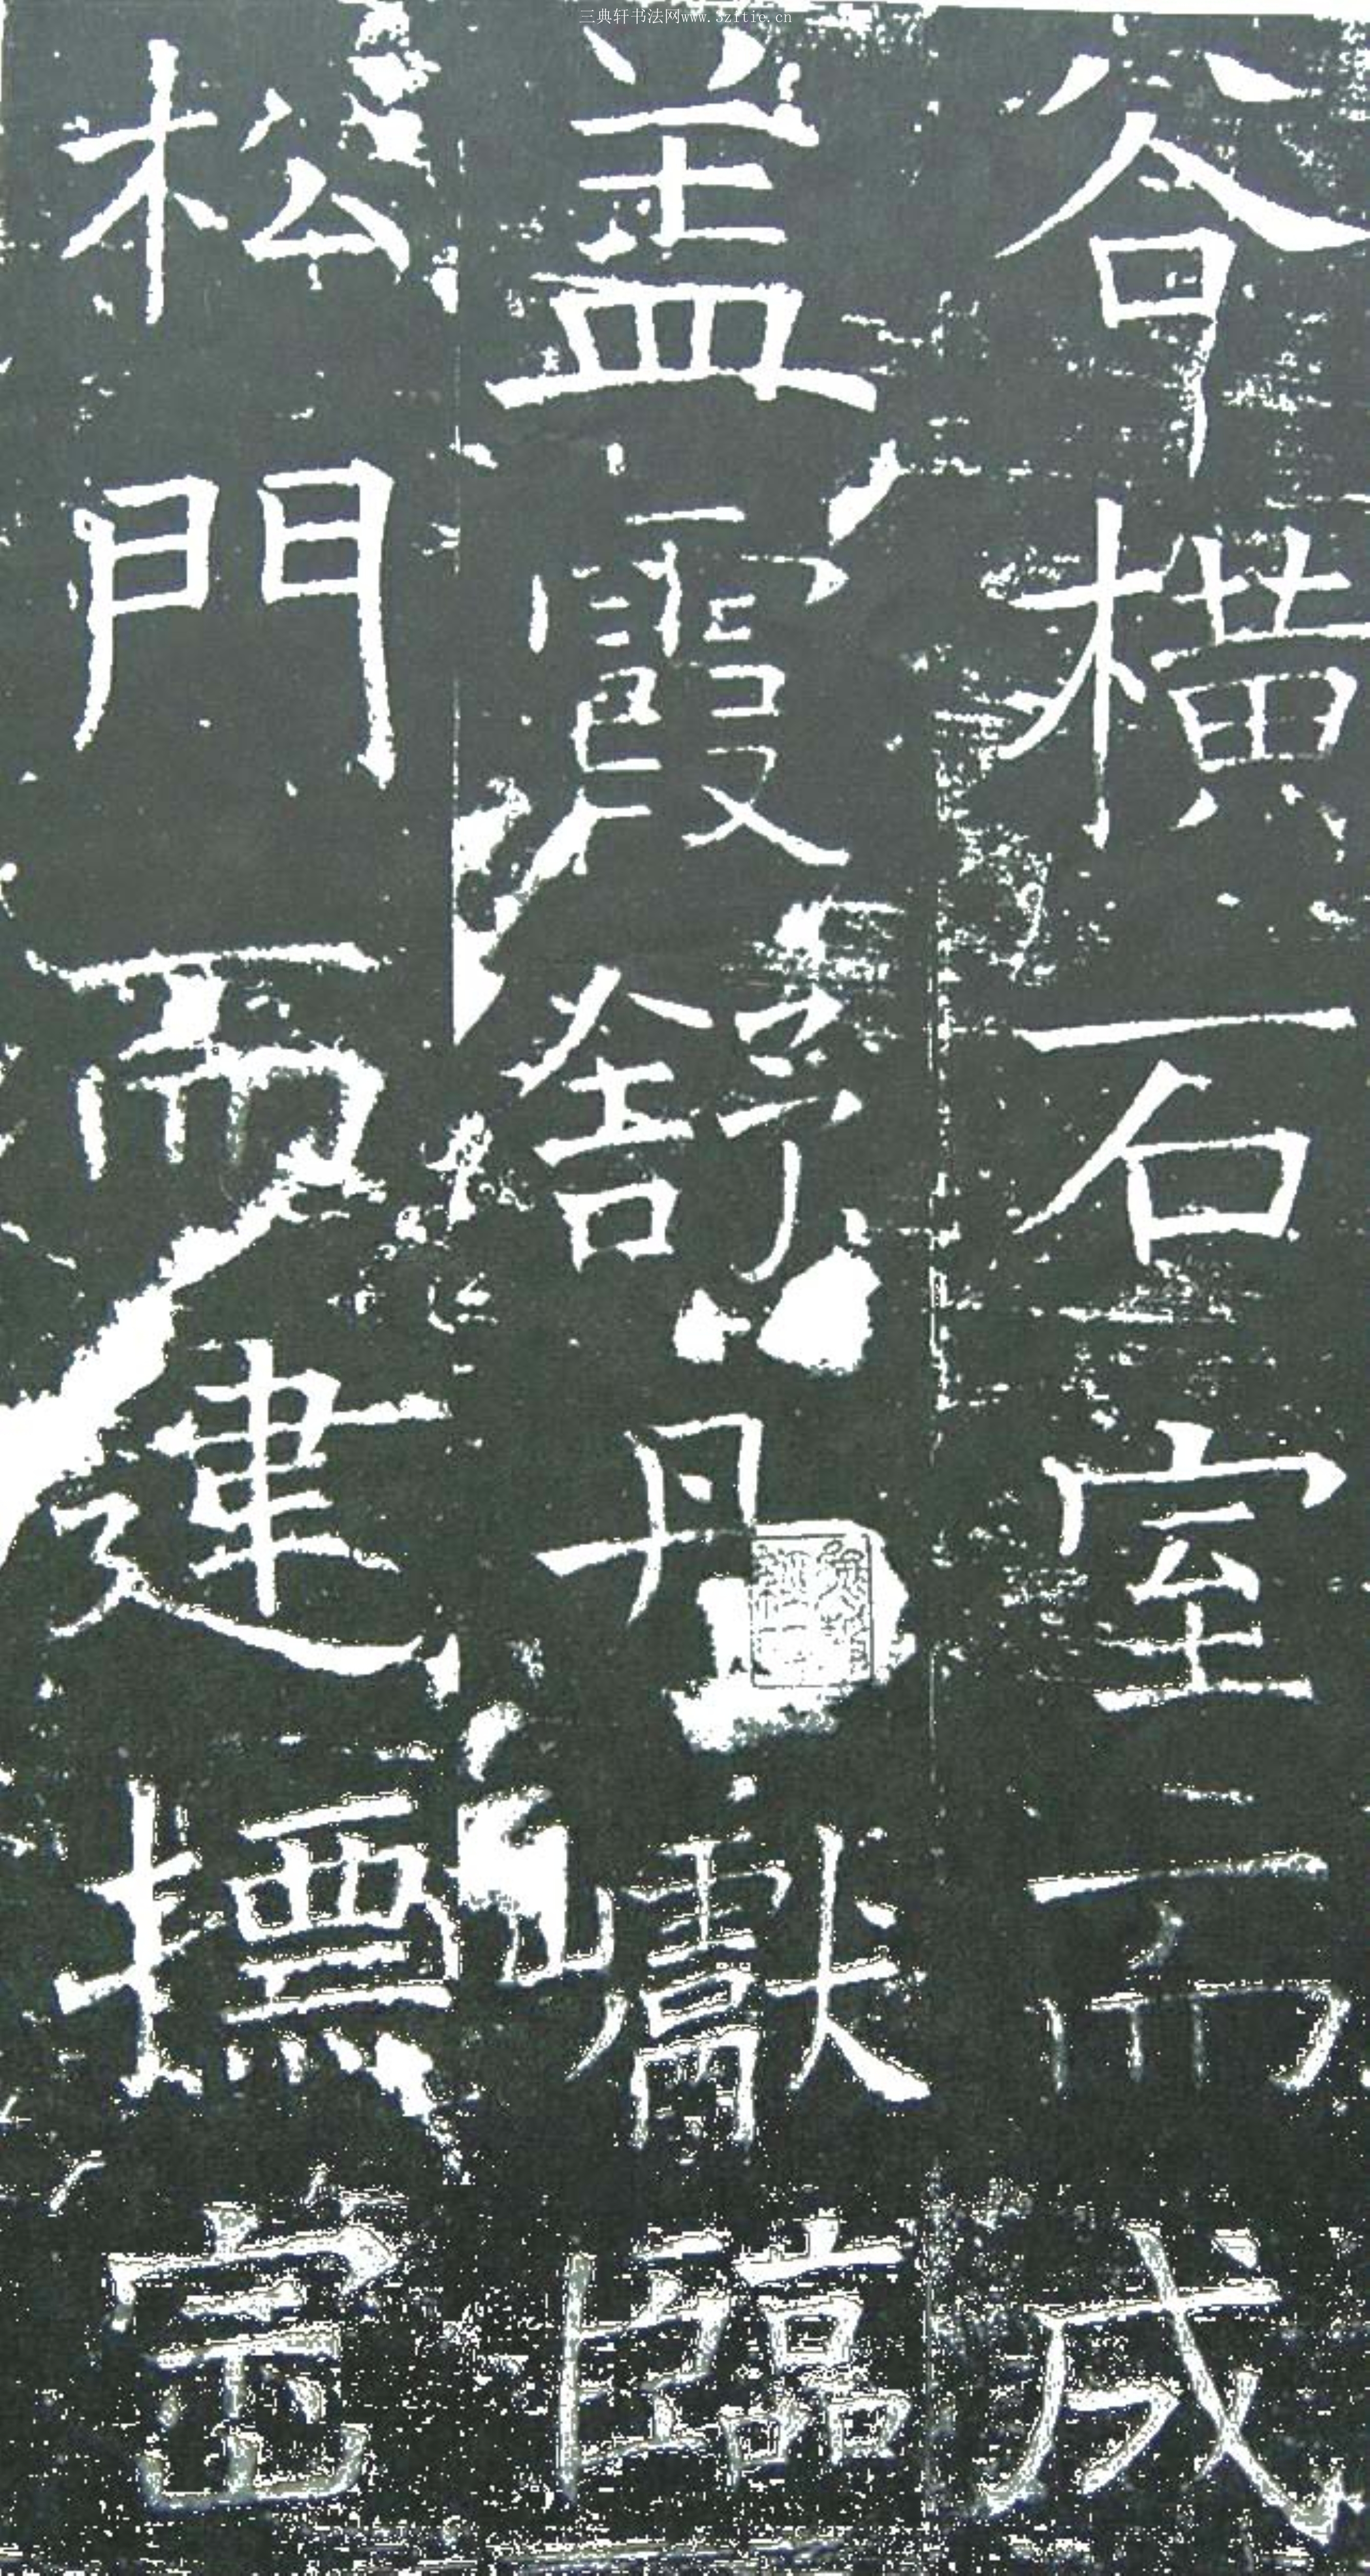 三典轩书法网www.3zitie.cn
谷橫石室而成
盖霞舒丹巘臨
松門而建摽